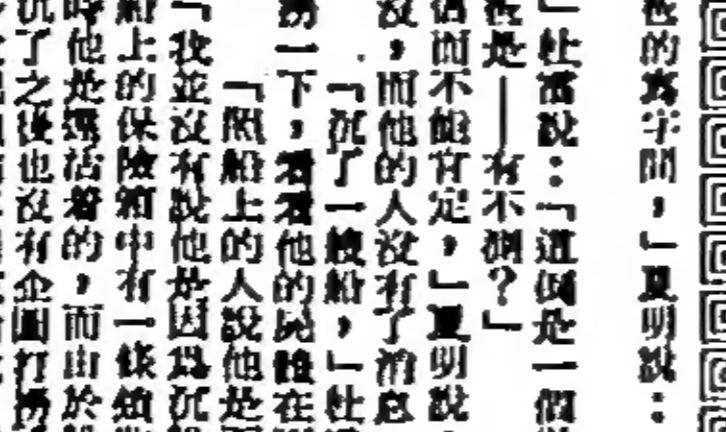 的寫字間，」夏明說：
」杜雷說：「這倒是一個
是——有不測？」
而不能肯定，」夏明說
沒，而他的人沒有了消息
「沉了一艘船，」杜
撈一下，看看他的屍體在
「照船上的人說他是
「我並沒有說他是因為沉
船上的保險箱中有一條
時他是還活着的，而由於
沉了之後也沒有企圖打撈